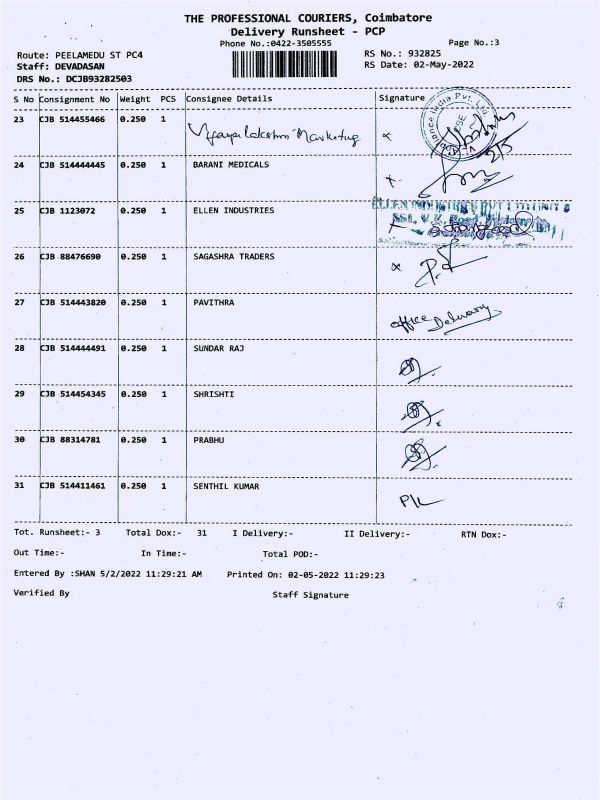 THE PROFESSIONAL COURIERS, Coimbatore
Delivery Runsheet - PCP
Phone No.:0422-3505555
Page No.:3
Route: PEELAMEDU ST PC4
RS No.: 932825
Staff: DEVADASAN
RS Date: 02-May-2022
DRS No.: DCJB93282503
S No Consignment No Weight PCS Consignee Details Signature
23 CJB 514455466 0.250 1 Vijayalakshmi Marketing
24 CJB 514444445 0.250 1 BARANI MEDICALS
25 CJB 1123072 0.250 1 ELLEN INDUSTRIES
26 CJB 88476690 0.250 1 SAGASHRA TRADERS
27 CJB 514443820 0.250 1 PAVITHRA office Delivery
28 CJB 514444491 0.250 1 SUNDAR RAJ
29 CJB 514454345 0.250 1 SHRISHTI
30 CJB 88314781 0.250 1 PRABHU
31 CJB 514411461 0.250 1 SENTHIL KUMAR
Tot. Runsheet:- 3 Total Dox:- 31 I Delivery:- II Delivery:- RTN Dox:-
Out Time:- In Time:- Total POD:-
Entered By :SHAN 5/2/2022 11:29:21 AM Printed On: 02-05-2022 11:29:23
Verified By Staff Signature